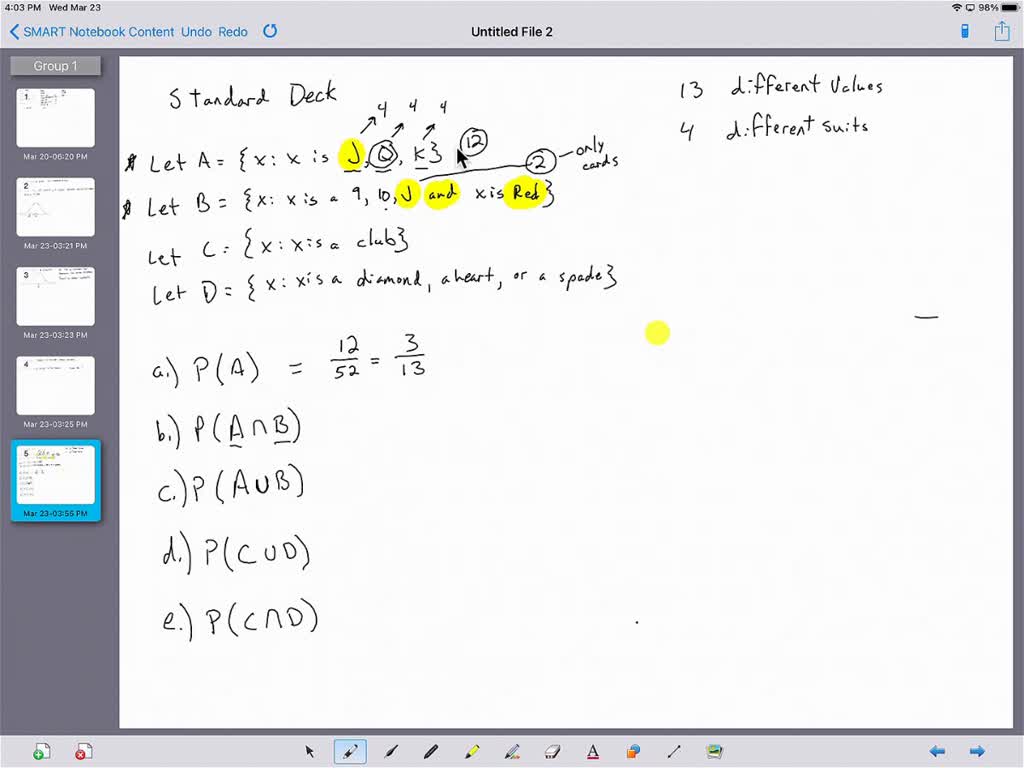 4:03 PM Wed Mar 23
98%
SMART Notebook Content Undo Redo
Untitled File 2
Group 1
1
Mar 20-06:20 PM
2
Mar 23-03:21 PM
3
Mar 23-03:23 PM
4
Mar 23-03:25 PM
5
Mar 23-03:55 PM
Standard Deck
13 different Values
4 different suits
4 4 4
Let A = {x: x is J, Q, K} 12
2 only cards
Let B = {x: x is a 9, 10, J and x is Red}
Let C = {x: x is a club}
Let D = {x: x is a diamond, a heart, or a spade}
a.) P(A) = 12/52 = 3/13
b.) P(A∩B)
c.) P(A∪B)
d.) P(C∪D)
e.) P(C∩D)
A